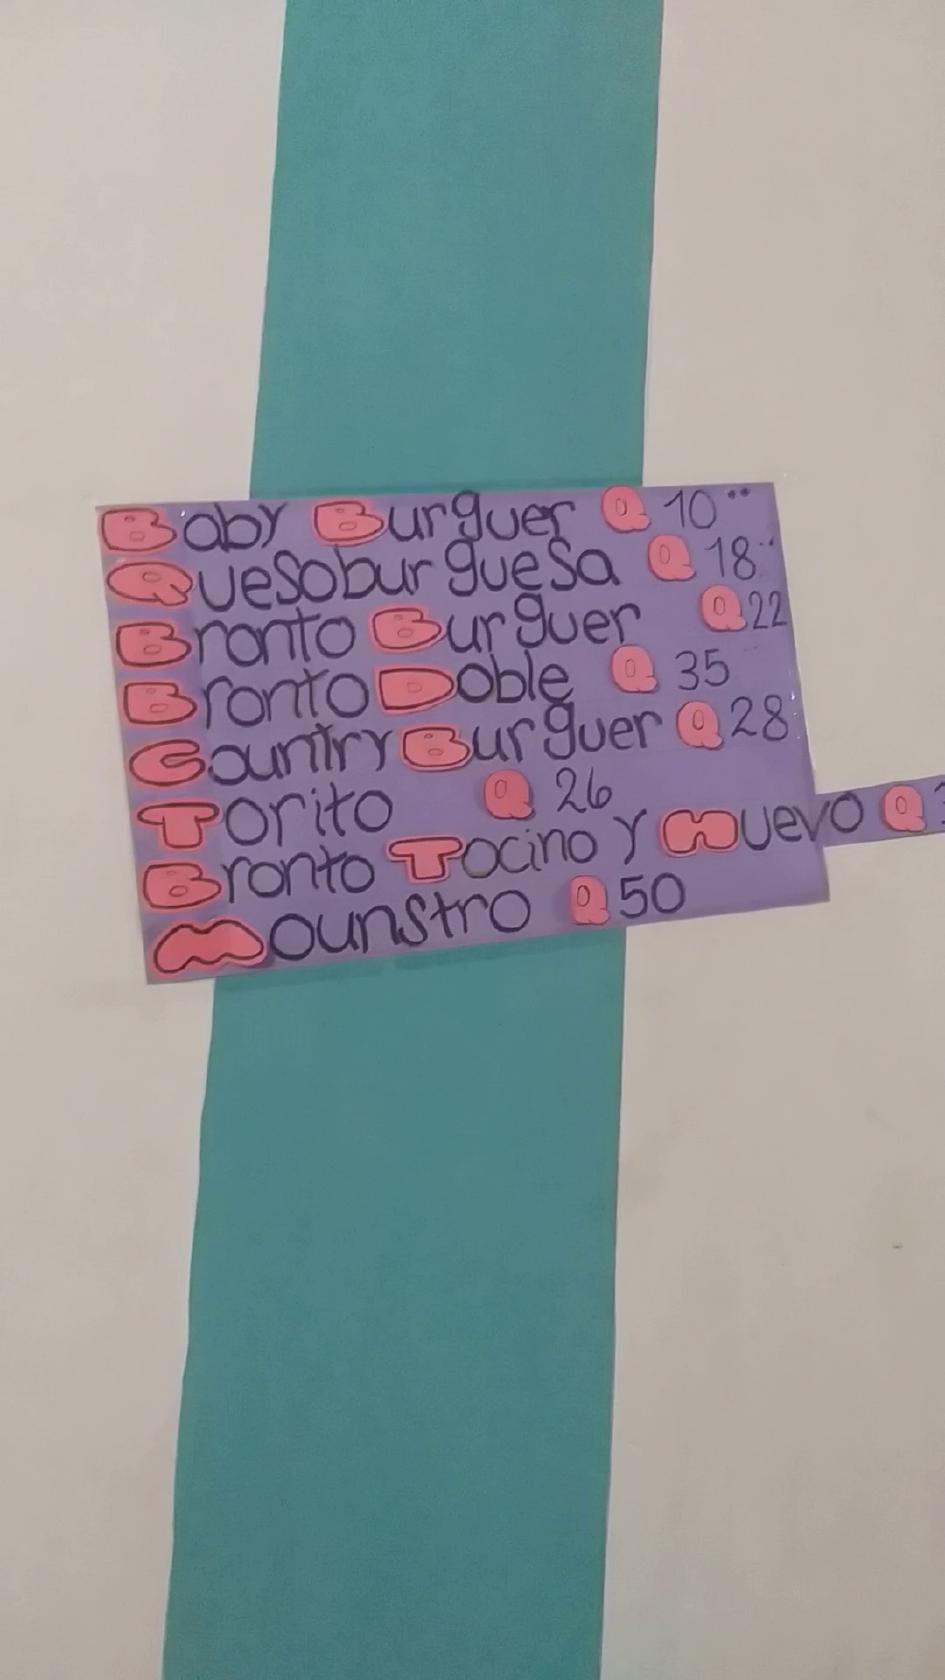 Baby Burguer Q 10
Quesoburguesa Q 18
Bronto Burguer Q22
Bronto Doble Q 35
Country Burguer Q 28
Torito Q 26
Bronto Tocino y Huevo Q
Mounstro Q 50